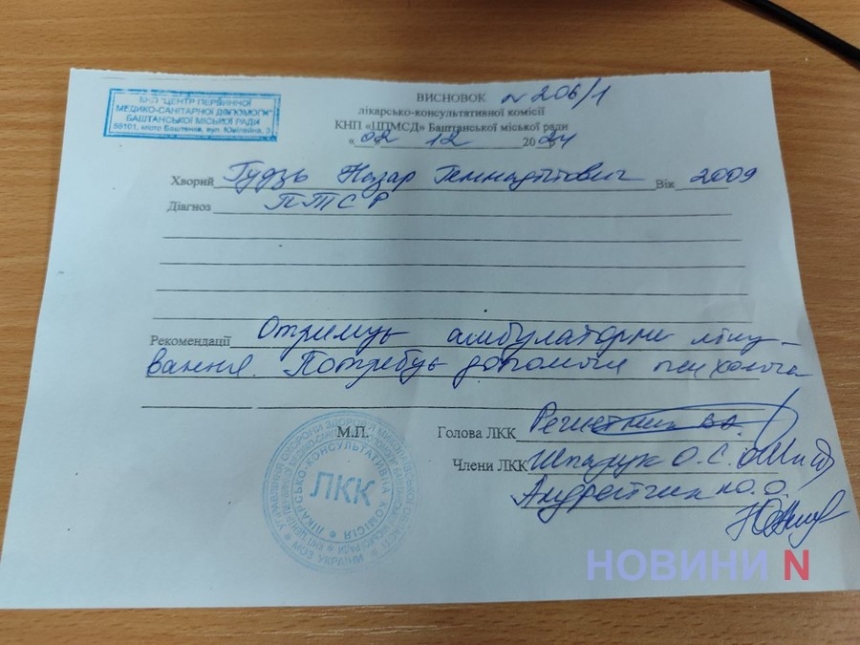 КНП "ЦЕНТР ПЕРВИННОЇ
МЕДИКО-САНІТАРНОЇ ДОПОМОГИ"
БАШТАНСЬКОЇ МІСЬКОЇ РАДИ
ВИСНОВОК № 206/1
лікарсько-консультативної комісії
КНП «ЦПМСД» Баштанської міської ради
« 02 12 2024
Хворий Гудзь Назар Геннадійович Вік 2009
Діагноз ПТСР
Рекомендації Отримує амбулаторне ліку-
вання. Потребує допомоги психолога
М.П. Голова ЛКК
Члени ЛКК Шпачук О.С.
Ю.О.
ЛІКАРСЬКО-КОНСУЛЬТАТИВНА КОМІСІЯ
ЛКК
НОВИНИ N